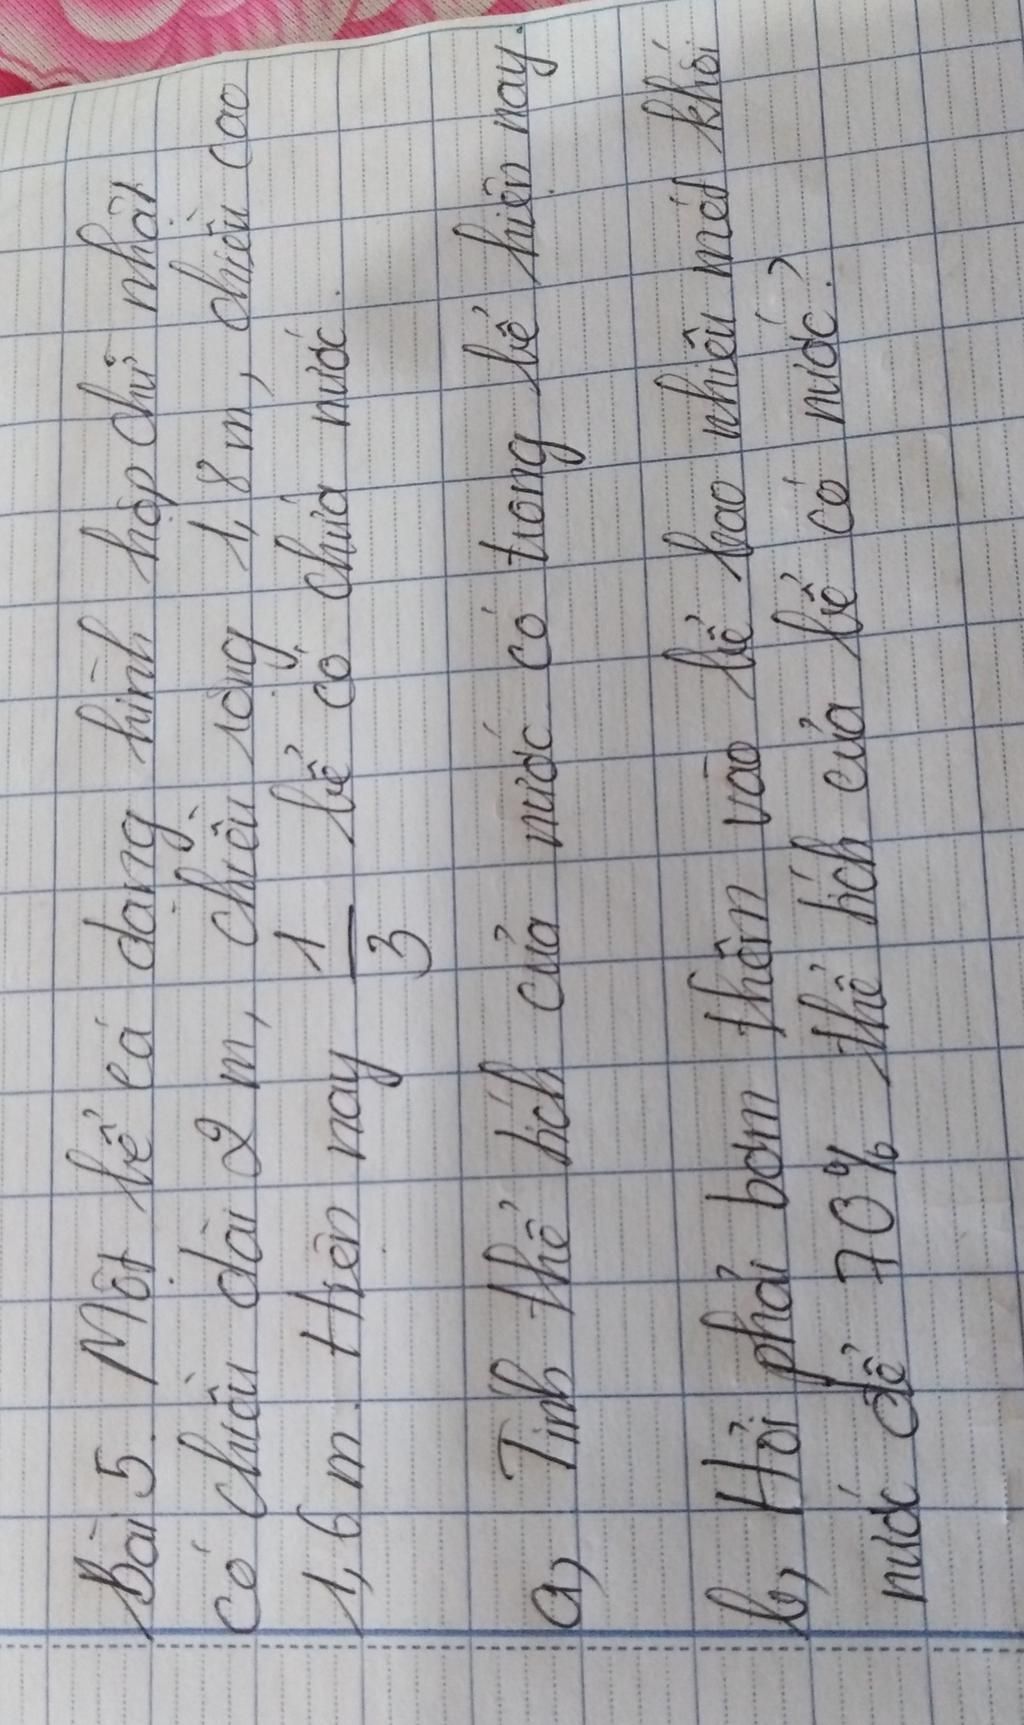 Bài 5. Một bể cá dạng hình hộp chữ nhật
có chiều dài 2 m, chiều rộng 1,8 m, chiều cao
1,6 m. Hiện nay 1/3 bể có chứa nước.
a, Tính thể tích của nước có trong bể hiện nay.
b, Hỏi phải bơm thêm vào bể bao nhiêu mét khối
nước để 70% thể tích của bể có nước?